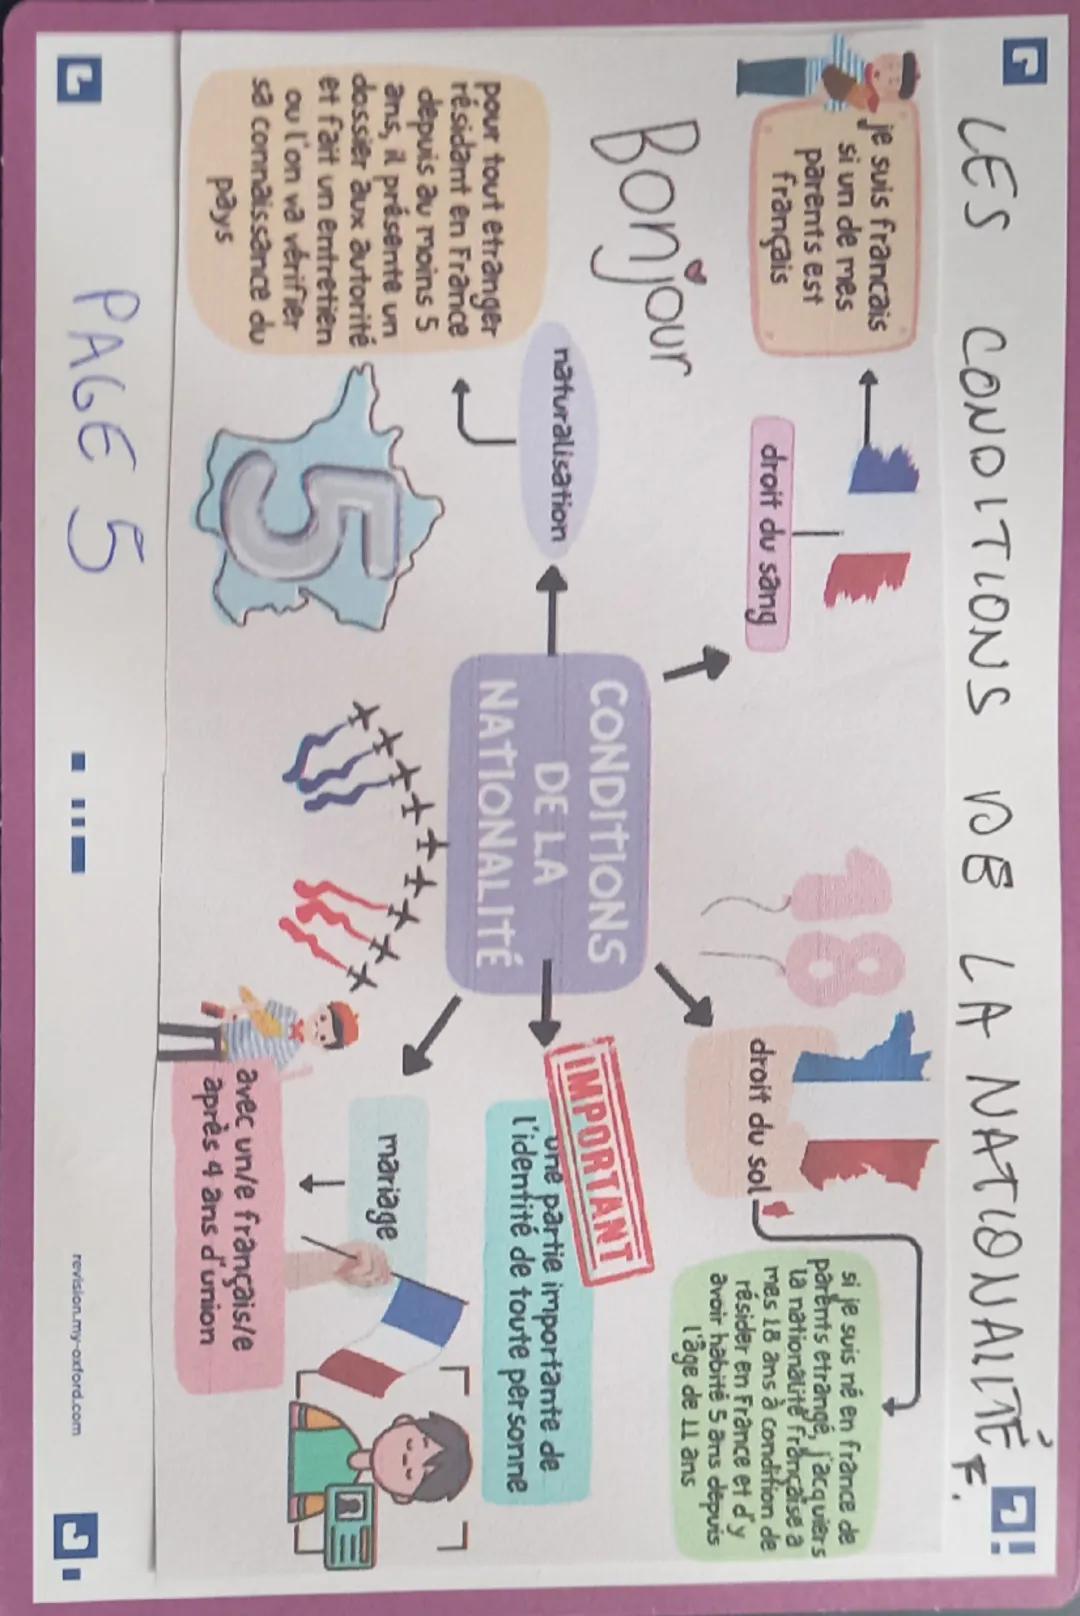 LES CONDITIONS DE LA NATIONALITÉ F.
je suis francais
si un de mes
parents est
français
droit du sang
Bonjour
18
droit du sol
si je suis né en france de
parents etrangé, j'acquiers
la nationalité française a
mes 18 ans à condition de
résider en France et d'y
avoir habité 5 ans depuis
l'âge de 11 ans
CONDITIONS
DE LA
NATIONALITÉ
naturalisation
pour tout etranger
résidant en France
depuis au moins 5
ans, il présente un
dossier aux autorité
et fait un entretien
ou l'on va vérifier
sa connaissance du
pays
5
IMPORTANT
une partie importante de
l'identité de toute personne
mariage
avec un/e français/e
après 4 ans d'union
PAGE 5
revision.my-oxford.com